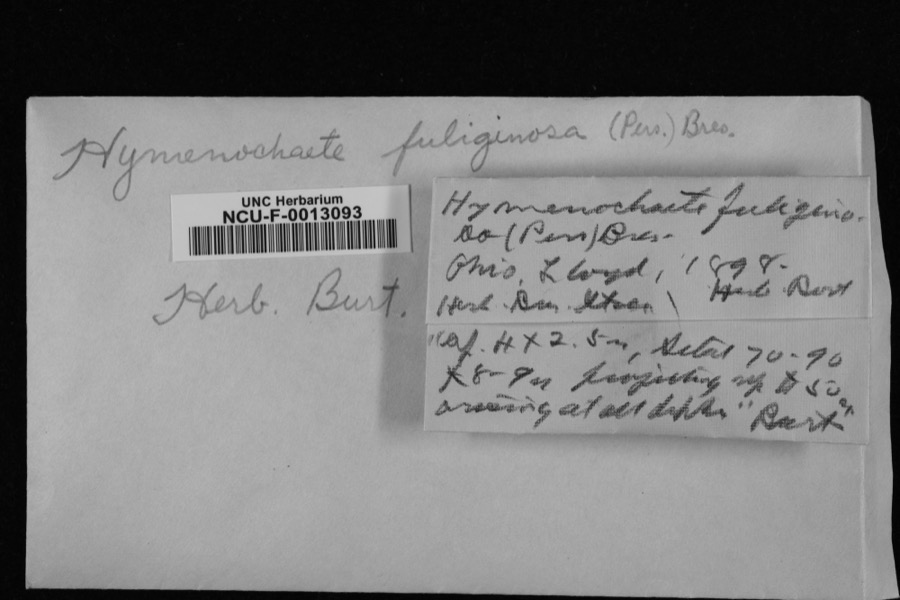 Hymenochaete fuliginosa (Pers.) Bres.
UNC Herbarium
NCU-F-0013093
Herb. Burt.
Hymenochaete fuligino-
sa (Pers) Bres-
Ohio, Lloyd, 1898-
Herb. Herb Burt
"Sp. 4 X 2.5u, Setae 70-90
X 8-9u projecting up to 50u
arising at all depths" Burt